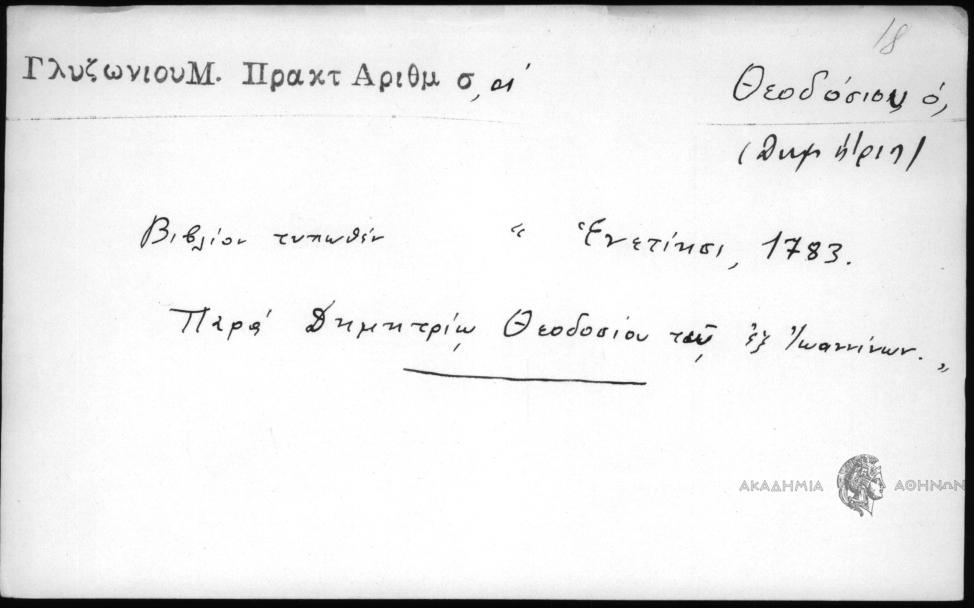 18
ΓλυζωνιουΜ. Πρακτ Αριθμ σ, αί
Θεοδόσιου ὁ,
(Δημήτρη)
Βιβλίον τυπωθέν “ Ἐνετίησι, 1783.
Παρά Δημητρίῳ Θεοδοσίου τοῦ ἐξ Ἰωαννίνων. „
ΑΚΑΔΗΜΙΑ ΑΘΗΝΩΝ